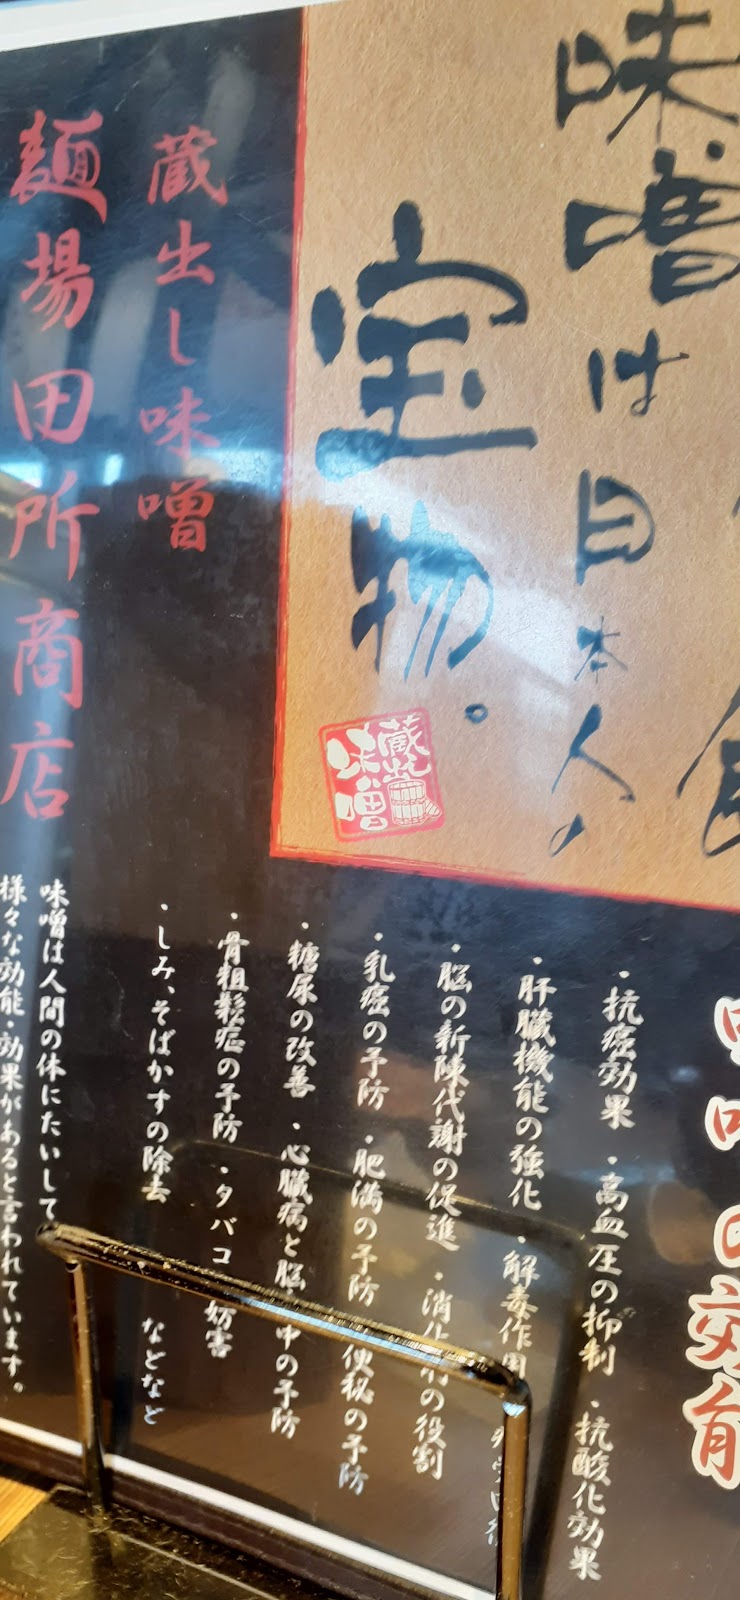 味噌は日本人の
宝物。
蔵出し
味噌
の効能
・抗癌効果 ・高血圧の抑制 ・抗酸化効果
・肝臓機能の強化 ・解毒作用
・脳の新陳代謝の促進 ・消化 の役割
・乳癌の予防 ・肥満の予防 便秘の予防
・糖尿の改善 ・心臓病と脳 中の予防
・骨粗鬆症の予防 ・タバコ 妨害
・しみ、そばかすの除去 などなど
蔵出し味噌
麺場田所商店
味噌は人間の体にたいして
様々な効能・効果があると言われています。